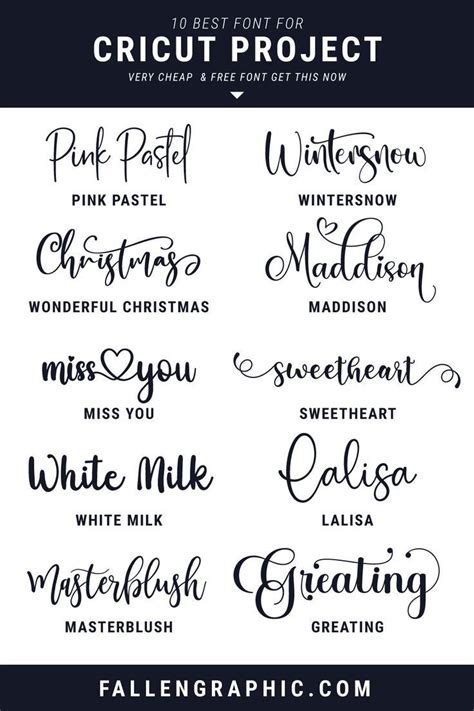 10 BEST FONT FOR
CRICUT PROJECT
VERY CHEAP & FREE FONT GET THIS NOW
Pink Pastel
PINK PASTEL
Wintersnow
WINTERSNOW
Christmas
WONDERFUL CHRISTMAS
Maddison
MADDISON
miss you
MISS YOU
sweetheart
SWEETHEART
White Milk
WHITE MILK
Lalisa
LALISA
Masterblush
MASTERBLUSH
Greating
GREATING
FALLENGRAPHIC.COM